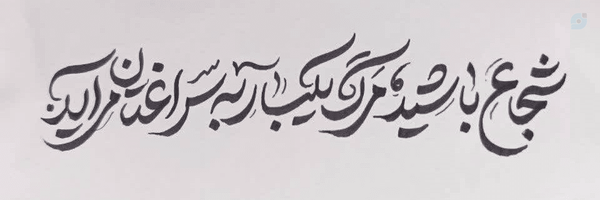 شجاع باشید، مرگ یکبار به سراغتان می‌آید.